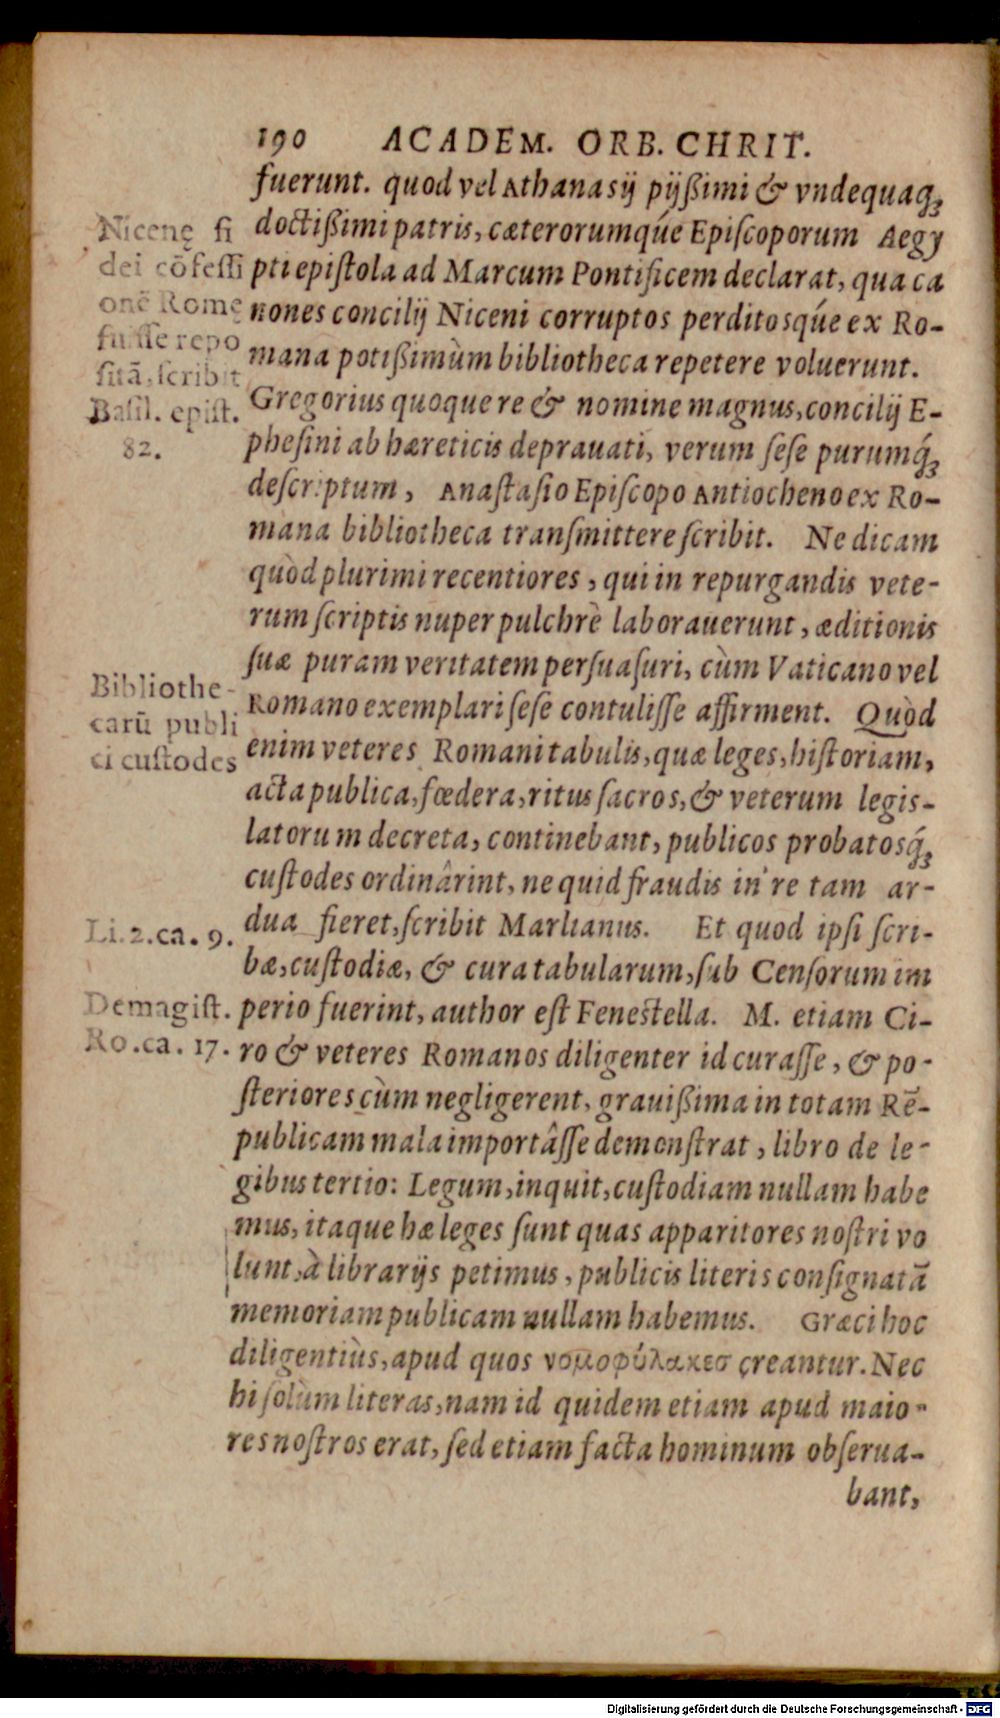 190 ACADEM. ORB. CHRIT.
fuerunt. quod vel Athanasij pijßimi & vndequaq́ꝫ
doctißimi patris, cæterorumqúe Epiſcoporum Aegy
pti epiſtola ad Marcum Pontificem declarat, qua ca
nones concilij Niceni corruptos perditosqúe ex Ro-
mana potißimùm bibliotheca repetere voluerunt.
Gregorius quoque re & nomine magnus, concilij E-
pheſini ab hæreticis deprauati, verum ſeſe purumq́ꝫ
deſcriptum, Anaſtaſio Epiſcopo Antiocheno ex Ro-
mana bibliotheca tranſmittere ſcribit. Ne dicam
quòd plurimi recentiores, qui in repurgandis vete-
rum ſcriptis nuper pulchrè laborauerunt, æditionis
ſuæ puram veritatem perſuaſuri, cùm Vaticano vel
Romano exemplari ſeſe contuliſſe affirment. Quòd
enim veteres Romani tabulis, quæ leges, hiſtoriam,
acta publica, fœdera, ritus ſacros, & veterum legis-
latorum decreta, continebant, publicos probatosq́ꝫ
cuſtodes ordinârint, ne quid fraudis in re tam ar-
dua fieret, ſcribit Marlianus. Et quod ipſi ſcri-
bæ, cuſtodiæ, & cura tabularum, ſub Cenſorum im
perio fuerint, author eſt Feneſtella. M. etiam Ci-
ro & veteres Romanos diligenter id curaſſe, & po-
ſteriores cùm negligerent, grauißima in totam Rē-
publicam mala importâſſe demonſtrat, libro de le-
gibus tertio: Legum, inquit, cuſtodiam nullam habe
mus, itaque hæ leges ſunt quas apparitores noſtri vo
lunt, à librarijs petimus, publicis literis conſignatā
memoriam publicam nullam habemus. Græci hoc
diligentiùs, apud quos νομοφύλακεσ creantur. Nec
hi ſolùm literas, nam id quidem etiam apud maio-
res noſtros erat, ſed etiam facta hominum obſerua-
bant,
Nicenę fi
dei cōfeſſi
onē Romę
fuiſſe repo
ſitā, ſcribit
Baſil. epiſt.
82.
Bibliothe-
carū publi
ci cuſtodes
Li. 2. ca. 9.
Demagiſt.
Ro. ca. 17.
Digitalisierung gefördert durch die Deutsche Forschungsgemeinschaft - DFG